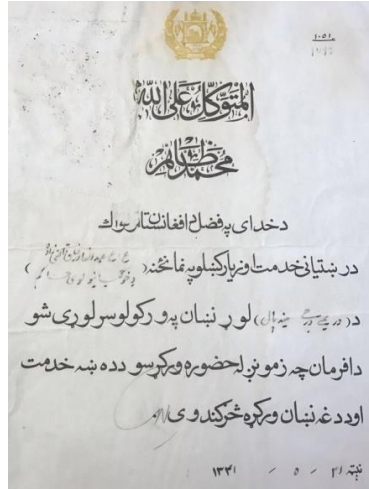 المتوکل علی الله
محمد ظاهر
د خدای په فضل د افغانستان ټولواک
در ښتیانی خدمت او زیار کښلو په نمانځنه (
د (دریمې درجې مینه پال) لوړ نښان په ورکولو سرلوړی شو
دا فرمان چه زمونږ له حضوره ورکړ سو د ده ښه خدمت
او د دغه نښان ورکړه څرګندوی
نېټه ۲۱ / ۵ / ۱۳۴۱